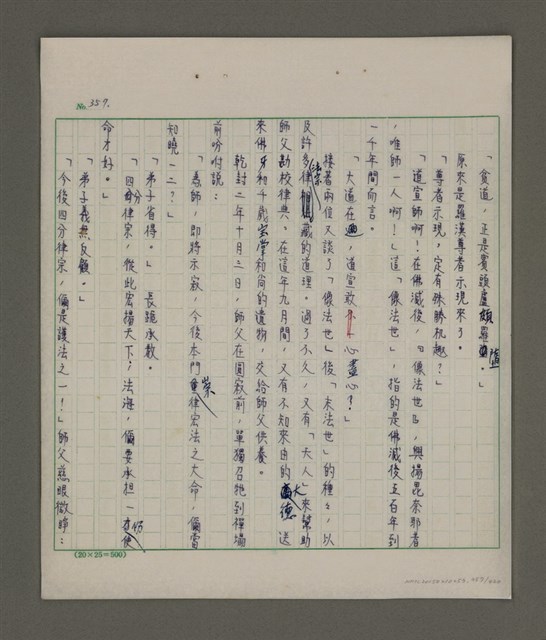 No. 359.
「貧道，正是賓頭盧頗羅墮。」
原來是羅漢尊者示現來了。
「尊者示現，定有殊勝机趣？」
「道宣師啊！在佛滅後，『像法世』，興揚毘奈耶者
，唯師一人啊！」這「像法世」，指的是佛滅後五百年到
一千年間而言。
「大道在邇，道宣敢不心盡心？」
接著兩位又談了「像法世」後「末法世」的種々，以
及許多律宗藏的道理。過了不久，又有「天人」來幫助
師父勘校律典。在這年九月間，又有不知來由的大德送
來佛牙和千歲寶掌和尚的遺物，交給師父供養。
乾封二年十月三日，師父在圓寂前，單獨召牠到禪場
前吩咐說：
「為師，即將示寂，今後本門律宗宏法之大命，儞當
知曉一二？」
「弟子省得。」長跪承教。
「四分律宗，從此宏揚天下；法海，儞要承担一切使
命才好。」
「弟子義無反顧。」
「今後四分律宗，儞是護法之一！」師父慈眼微睜：
(20×25=500)